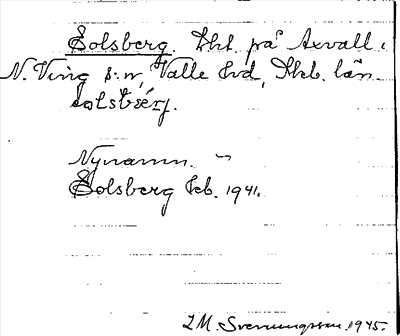 Solsberg. Lht. på Axvall i
N. Ving s:n, Valle hd, Skb. län.
Nynamn.
Solsberg kb. 1941.
S. M. Svenungsson. 1945.